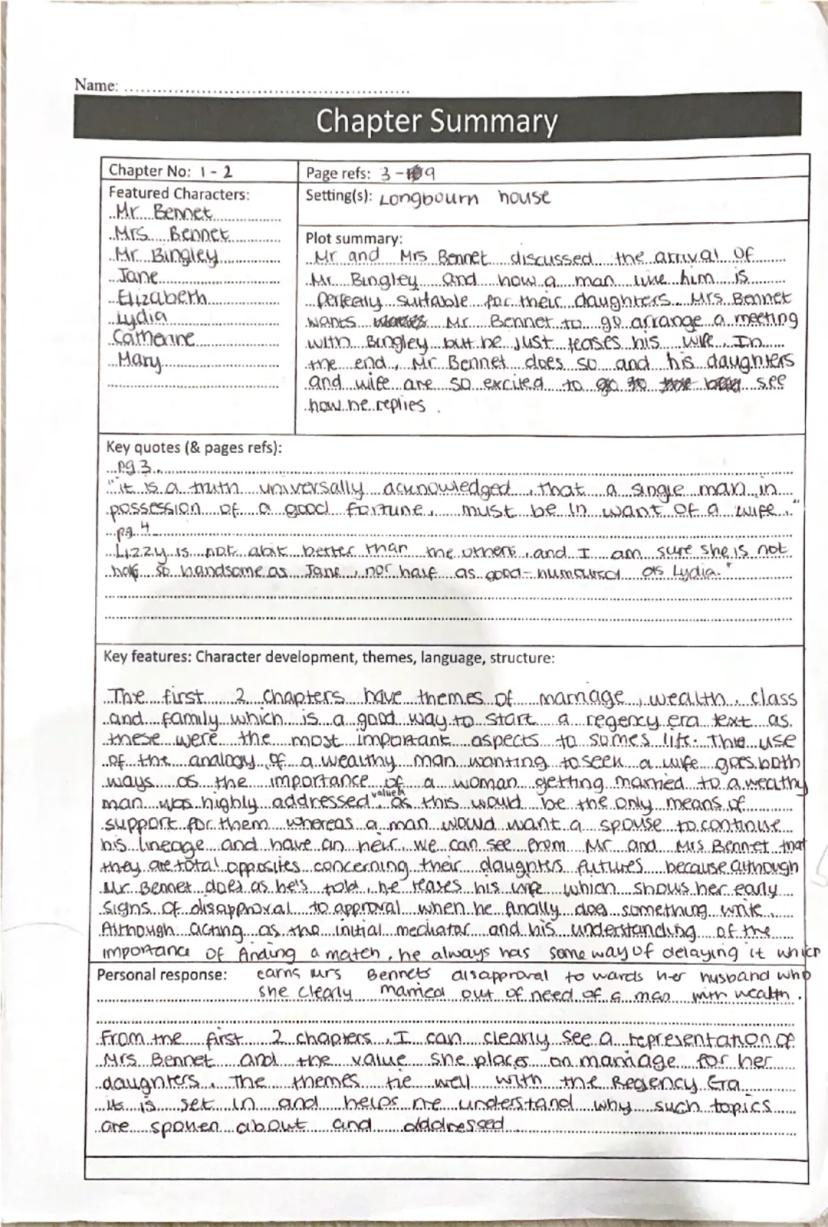 Name: ................................................
Chapter Summary
Chapter No: 1 - 2
Page refs: 3 - 9
Featured Characters:
Mr Bennet
Mrs Bennet
Mr Bingley
Jane
Elizabeth
Lydia
Catherine
Mary
Setting(s): Longbourn house
Plot summary:
Mr and Mrs Bennet discussed the arrival of
Mr Bingley and how a man like him is
perfectly suitable for their daughters. Mrs Bennet
wants Mr Bennet to go arrange a meeting
with Bingley but he just teases his wife. In
the end, Mr Bennet does so and his daughters
and wife are so excited to see
how he replies.
Key quotes (& pages refs):
pg 3
"it is a truth universally acknowledged, that a single man in
possession of a good fortune, must be in want of a wife."
pg 4
Lizzy is not abit better than the others, and I am sure she is not
half so handsome as Jane, nor half as good-humoured as Lydia."
Key features: Character development, themes, language, structure:
The first 2 chapters have themes of marriage, wealth, class
and family which is a good way to start a regency era text as
these were the most important aspects to life. The use
of the analogy of a wealthy man wanting to seek a wife goes both
ways as the importance of a woman getting married to a wealthy
man was highly addressed valued as this would be the only means of
support for them whereas a man would want a spouse to continue
his lineage and have an heir. We can see from Mr and Mrs Bennet that
they are total opposites concerning their daughters futures because although
Mr Bennet does as he's told, he teases his wife which shows her early
signs of disapproval to approval when he finally does something write.
Although acting as the initial mediator and his understanding of the
importance of finding a match, he always has some way of delaying it which
Personal response: earns Mrs Bennets disapproval to wards her husband who
she clearly married out of need of a man with wealth.
From the first 2 chapters, I can clearly see a representation of
Mrs Bennet and the value she places on marriage for her
daughters. The themes tie well with the Regency Era
it is set in and helps me understand why such topics
are spoken about and addressed